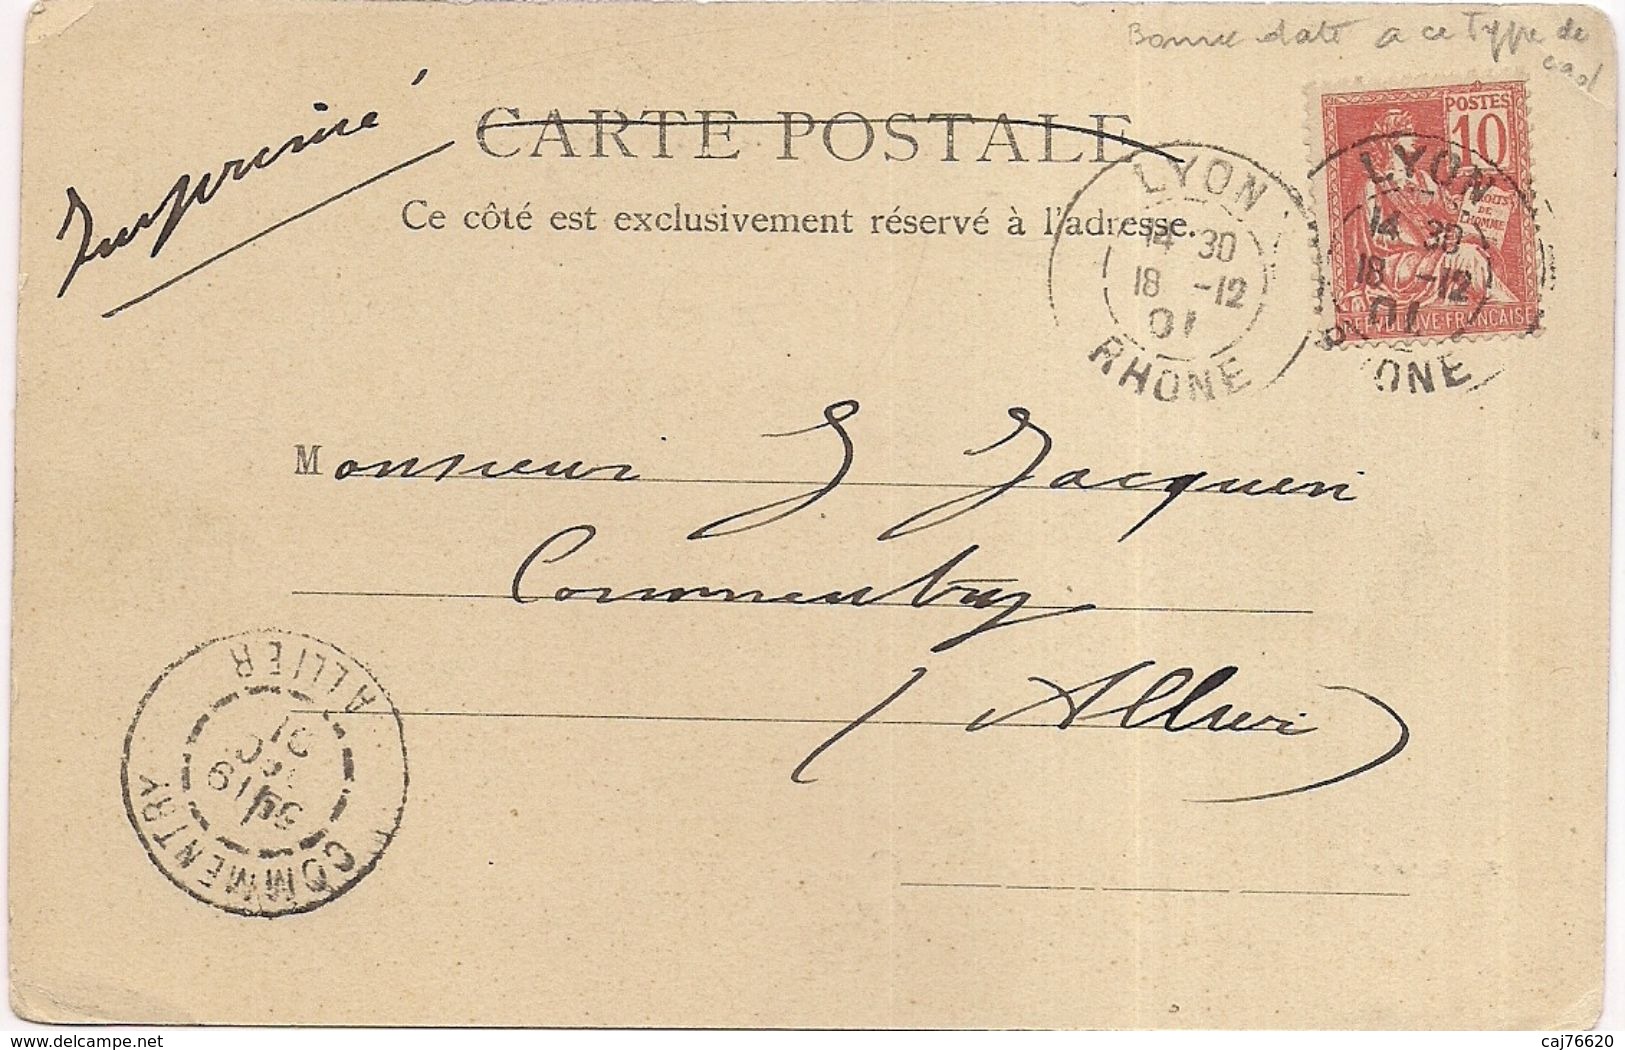 Bonne date a ce Type de
cad
Imprimé
CARTE POSTALE
Ce côté est exclusivement réservé à l'adresse.
POSTES
10
DROITS
DE
L'HOMME
REPUBLIQUE FRANÇAISE
LYON
14 30
18 -12
01
RHONE
LYON
14 30
18 -12
01
RHONE
Monsieur G Jacquier
Commentry
Allier
COMMENTRY
19
01
ALLIER
www.delcampe.net
caj76620